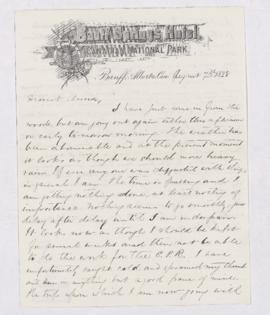 Banff Springs Hotel
Canadian National Park.
Banff, Alberta, August 7th 1888
Dearest Annie,
I have just come in from the
woods but am going out again either this afternoon
or early to-morrow morning. The weather has
been abominable and at the present moment
it looks as though we should have heavy
rain. If ever any one was disgusted with things
in general I am. The time is passing and I
am getting nothing done, at least nothing of
importance. Nothing seems to go smoothly, just
delay after delay until I am in despair.
It looks now as though I should be kept
for several weeks and then not be able
to do the work for the C.P.R. I have
unfortunately caught cold and sprained my thumb
and am in anything but a good frame of mind.
The trip upon which I am now going with